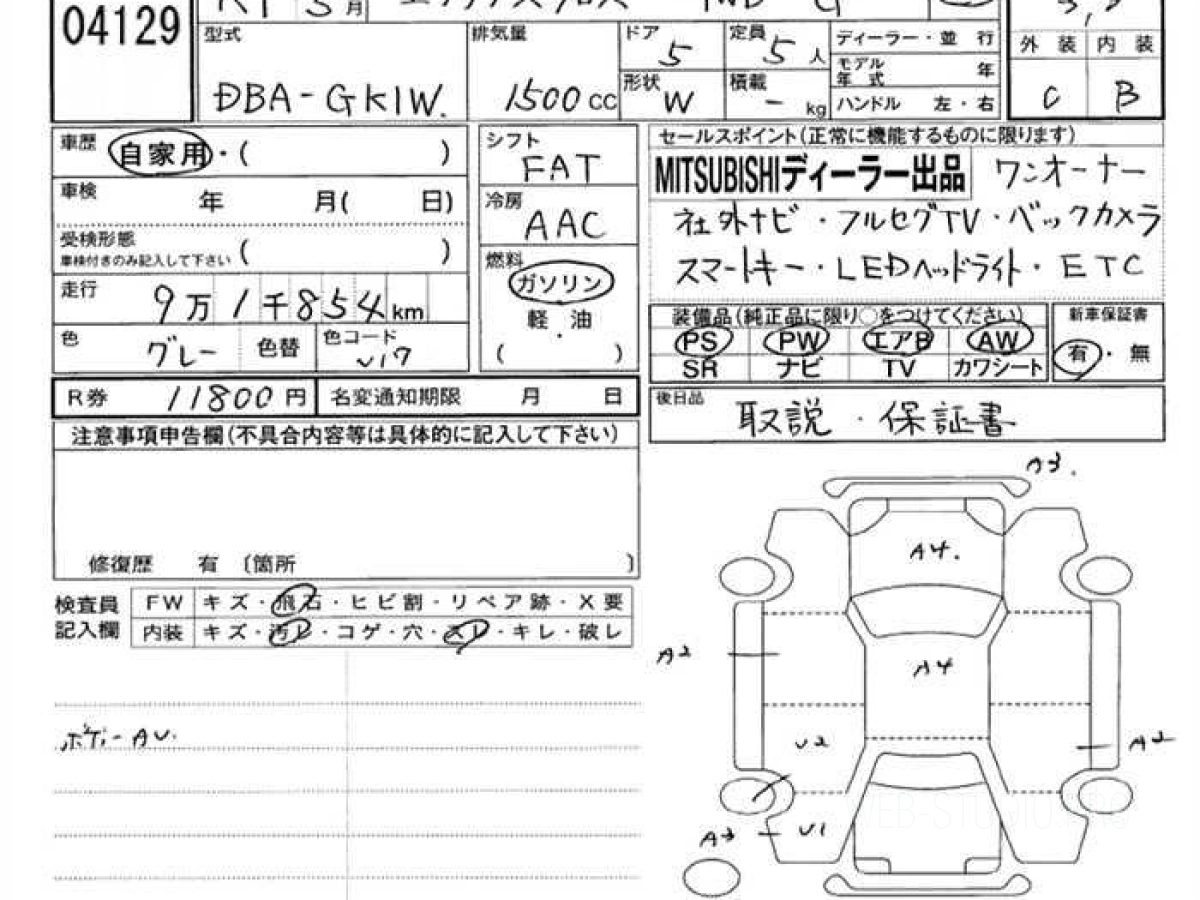 04129
R1 5月 エクリプスクロス 4WD G
型式 DBA-GK1W.
排気量 1500 cc
ドア 5
定員 5 人
形状 W
積載 - kg
ディーラー・並 行
モデル年式 年
ハンドル 左・右
外 装 内 装
C B
車歴 自家用・( )
車検 年 月( 日)
受検形態 ( )
車検付きのみ記入して下さい
走行 9万1千854km
色 グレー 色替 色コード U17
シフト FAT
冷房 AAC
燃料 ガソリン
軽・油
( )
セールスポイント(正常に機能するものに限ります)
MITSUBISHIディーラー出品 ワンオーナー
社外ナビ・フルセグTV・バックカメラ
スマートキー・LEDヘッドライト・ETC
装備品(純正品に限り○をつけてください)
PS PW エアB AW
SR ナビ TV カワシート
新車保証書
有・無
R券 11800円 名変通知期限 月 日
後日品 取説・保証書
注意事項申告欄(不具合内容等は具体的に記入して下さい)
修復歴 有 〔箇所 〕
検査員記入欄
FW キズ・飛石・ヒビ割・リペア跡・X要
内装 キズ・汚レ・コゲ・穴・スレ・キレ・破レ
ボディーAU.
A3.
A4.
A2
A4
U2
A2
A3
U1